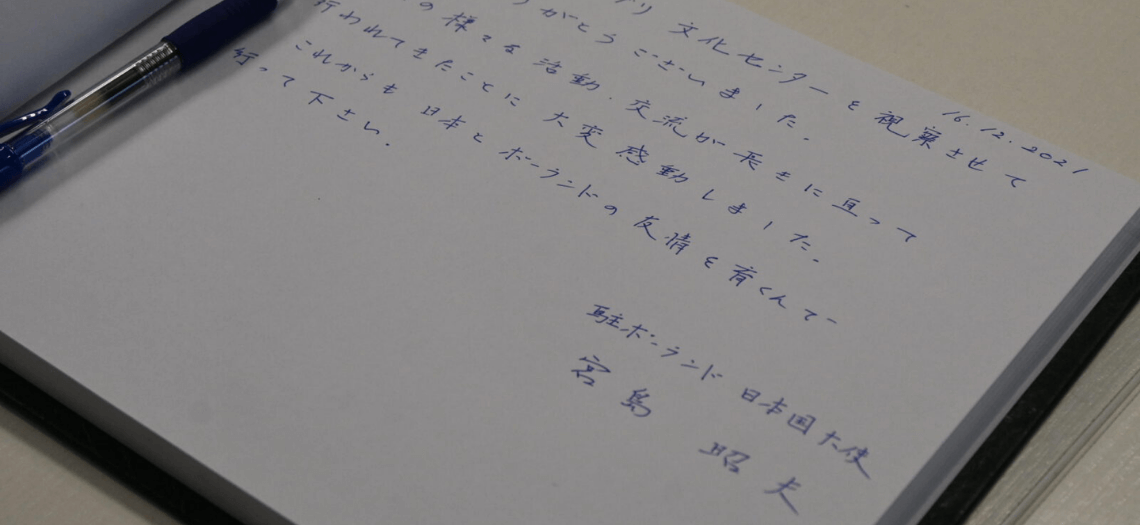 16.12.2021
文化センターを視察させて
がとうございました。
の様々な活動、交流が長きに亘って
行われてきたことに大変感動しました。
これからも日本とポーランドの友情を育くんで
行って下さい。
駐ポーランド日本国大使
宮島 昭夫